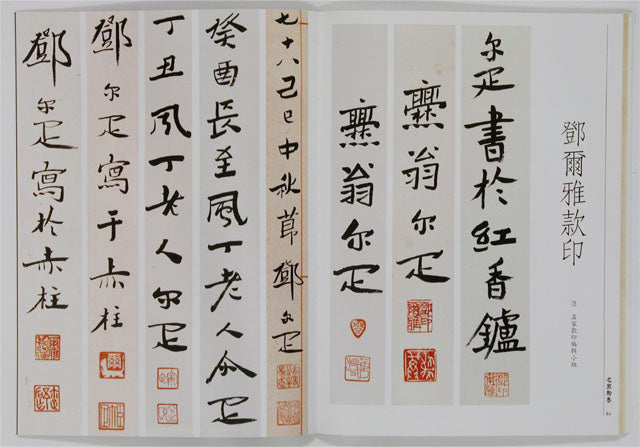 鄧爾雅款印
名家款印編輯小組
尔疋書於紅香鑪
爨翁尔疋
爨翁尔疋
七十八己巳中秋節鄧尔疋
癸酉長至風丁老人尒疋
丁丑風丁老人尔疋
鄧尔疋寫于赤柱
鄧尔疋寫於赤柱